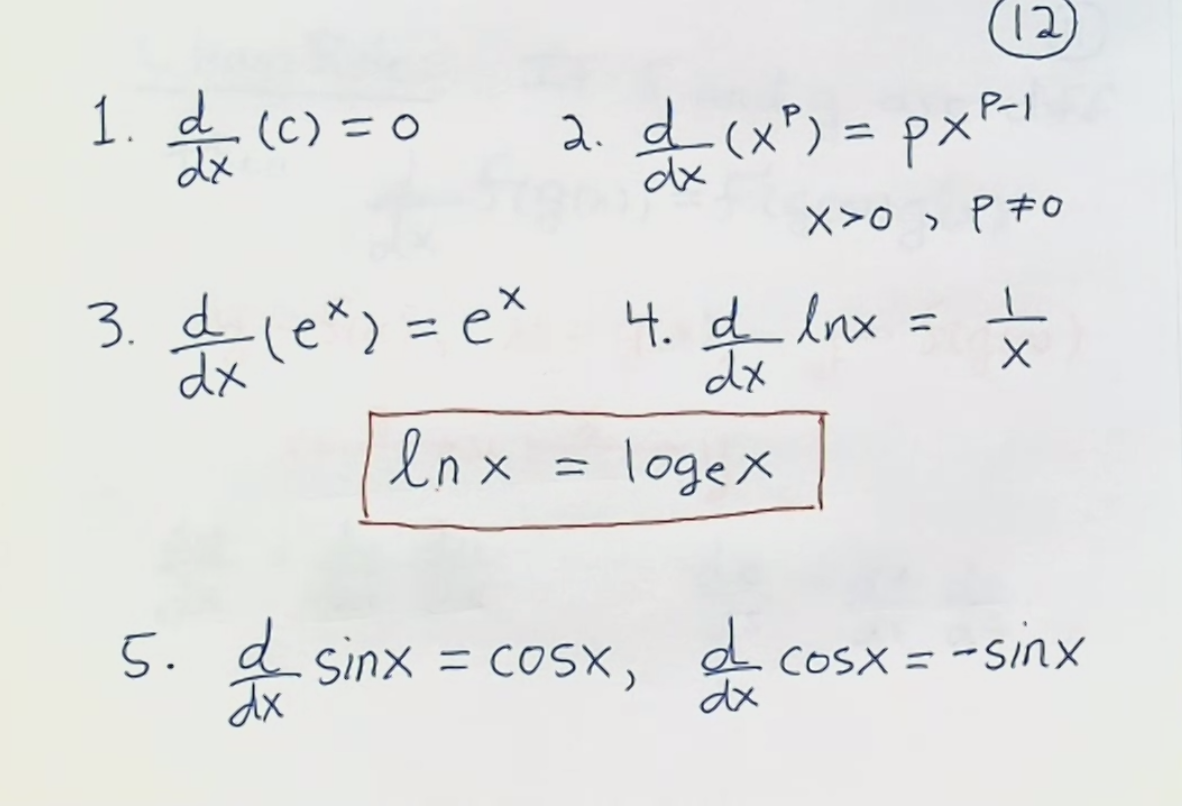 12
1. d/dx (c) = 0    2. d/dx (xᵖ) = pxᵖ⁻¹
x>0 , p ≠ 0
3. d/dx (eˣ) = eˣ    4. d/dx lnx = 1/x
ln x = logₑ x
5. d/dx sinx = cosx, d/dx cosx = -sinx